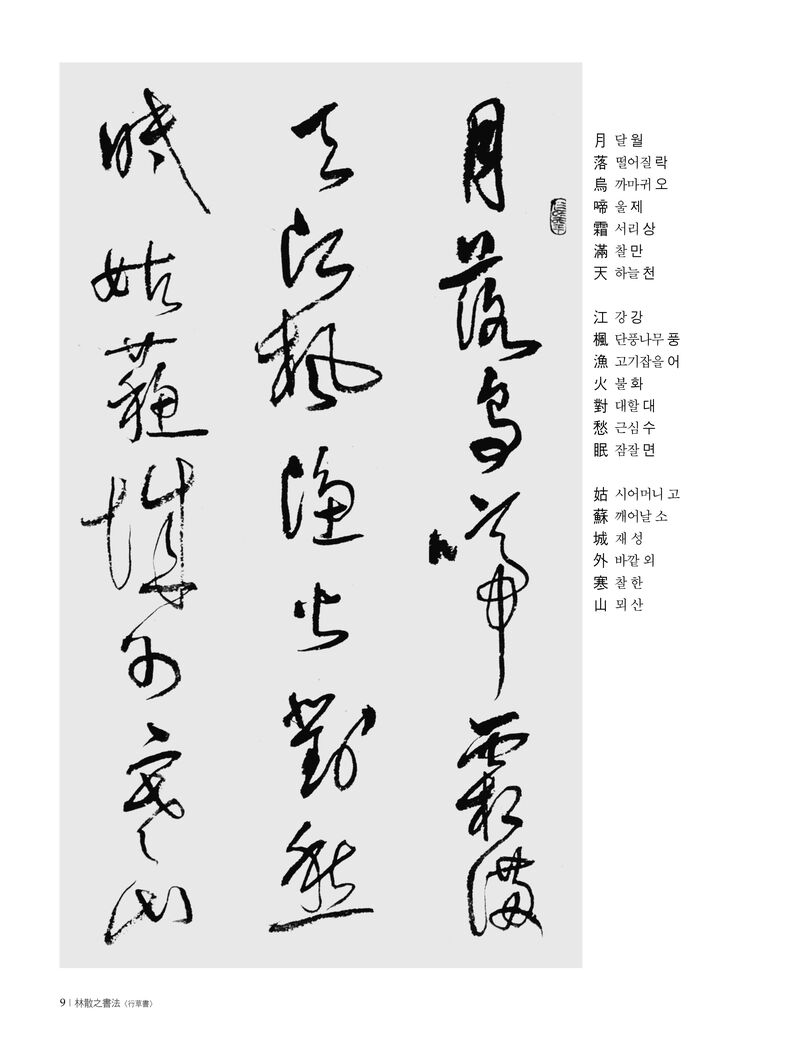 月落烏啼霜滿
天江楓漁火對愁
眠姑蘇城外寒山
月 달 월
落 떨어질 락
烏 까마귀 오
啼 울 제
霜 서리 상
滿 찰 만
天 하늘 천
江 강 강
楓 단풍나무 풍
漁 고기잡을 어
火 불 화
對 대할 대
愁 근심 수
眠 잠잘 면
姑 시어머니 고
蘇 깨어날 소
城 재 성
外 바깥 외
寒 찰 한
山 뫼 산
9 | 林散之書法 (行草書)